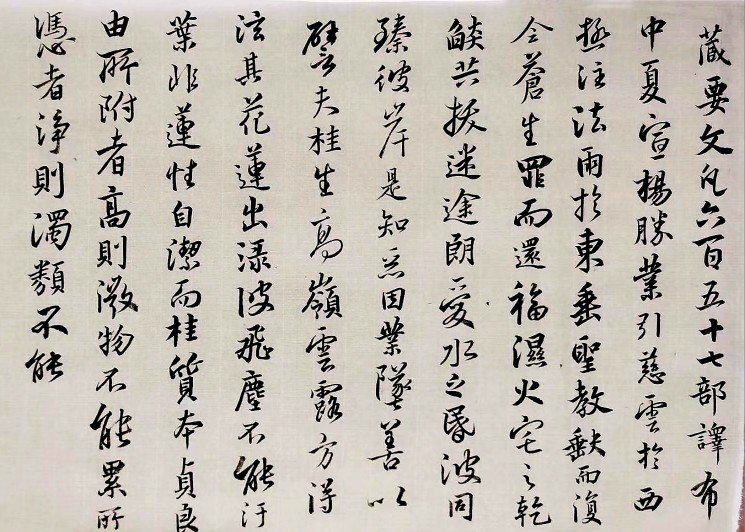 藏要文凡六百五十七部譯布
中夏宣揚勝業引慈雲於西
極注法雨於東垂聖教缺而復
全蒼生罪而還福濕火宅之乾
燄共拔迷途朗愛水之昏波同
臻彼岸是知惡因業墜善以
譬夫桂生高嶺雲露方得
泫其花蓮出淥波飛塵不能汙
葉非蓮性自潔而桂質本貞良
由所附者高則微物不能累所
憑者淨則濁類不能